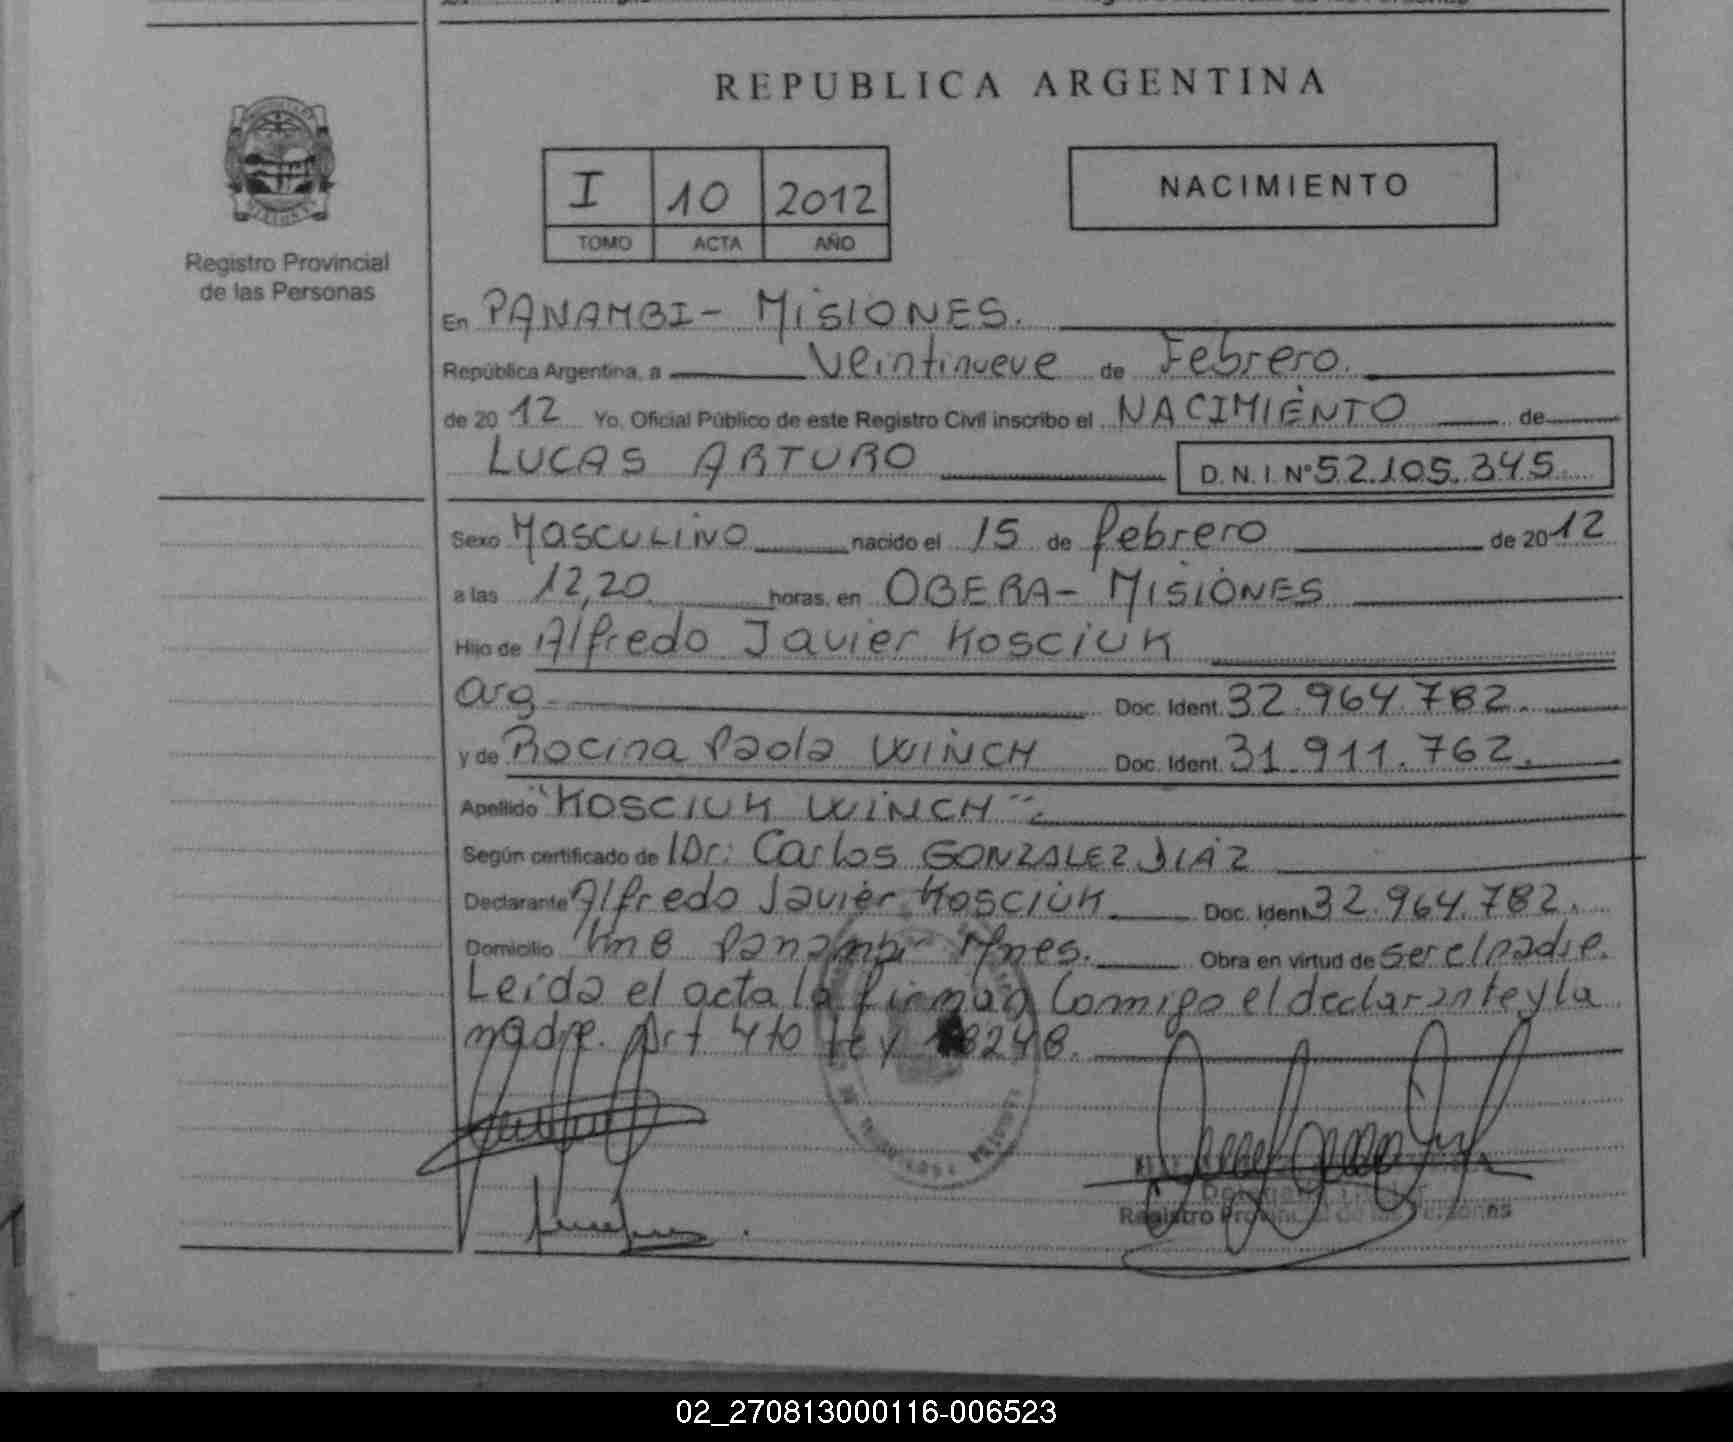 REPUBLICA ARGENTINA
I 10 2012
TOMO ACTA AÑO
NACIMIENTO
Registro Provincial
de las Personas
En PANAMBI - MISIONES.
República Argentina, a veintinueve de Febrero.
de 2012 Yo, Oficial Público de este Registro Civil inscribo el NACIMIENTO de
LUCAS ARTURO D.N.I. Nº 52.105.345
Sexo Masculino nacido el 15 de febrero de 2012
a las 12,20 horas, en OBERA - MISIONES
Hijo de Alfredo Javier Kosciuk
arg. Doc. Ident. 32.964.782.
y de Rocina Paola WINCH Doc. Ident. 31.911.762.
Apellido "KOSCIUK WINCH".
Según certificado de Dr: Carlos GONZALEZ DIAZ
Declarante Alfredo Javier Kosciuk Doc. Ident. 32.964.782.
Domicilio Km 8 Panambi Mnes. Obra en virtud de ser el padre.
Leída el acta la firman Conmigo el declarante y la
madre. Art 4to ley 18248.
Registro Provincial de las Personas
02_270813000116-006523